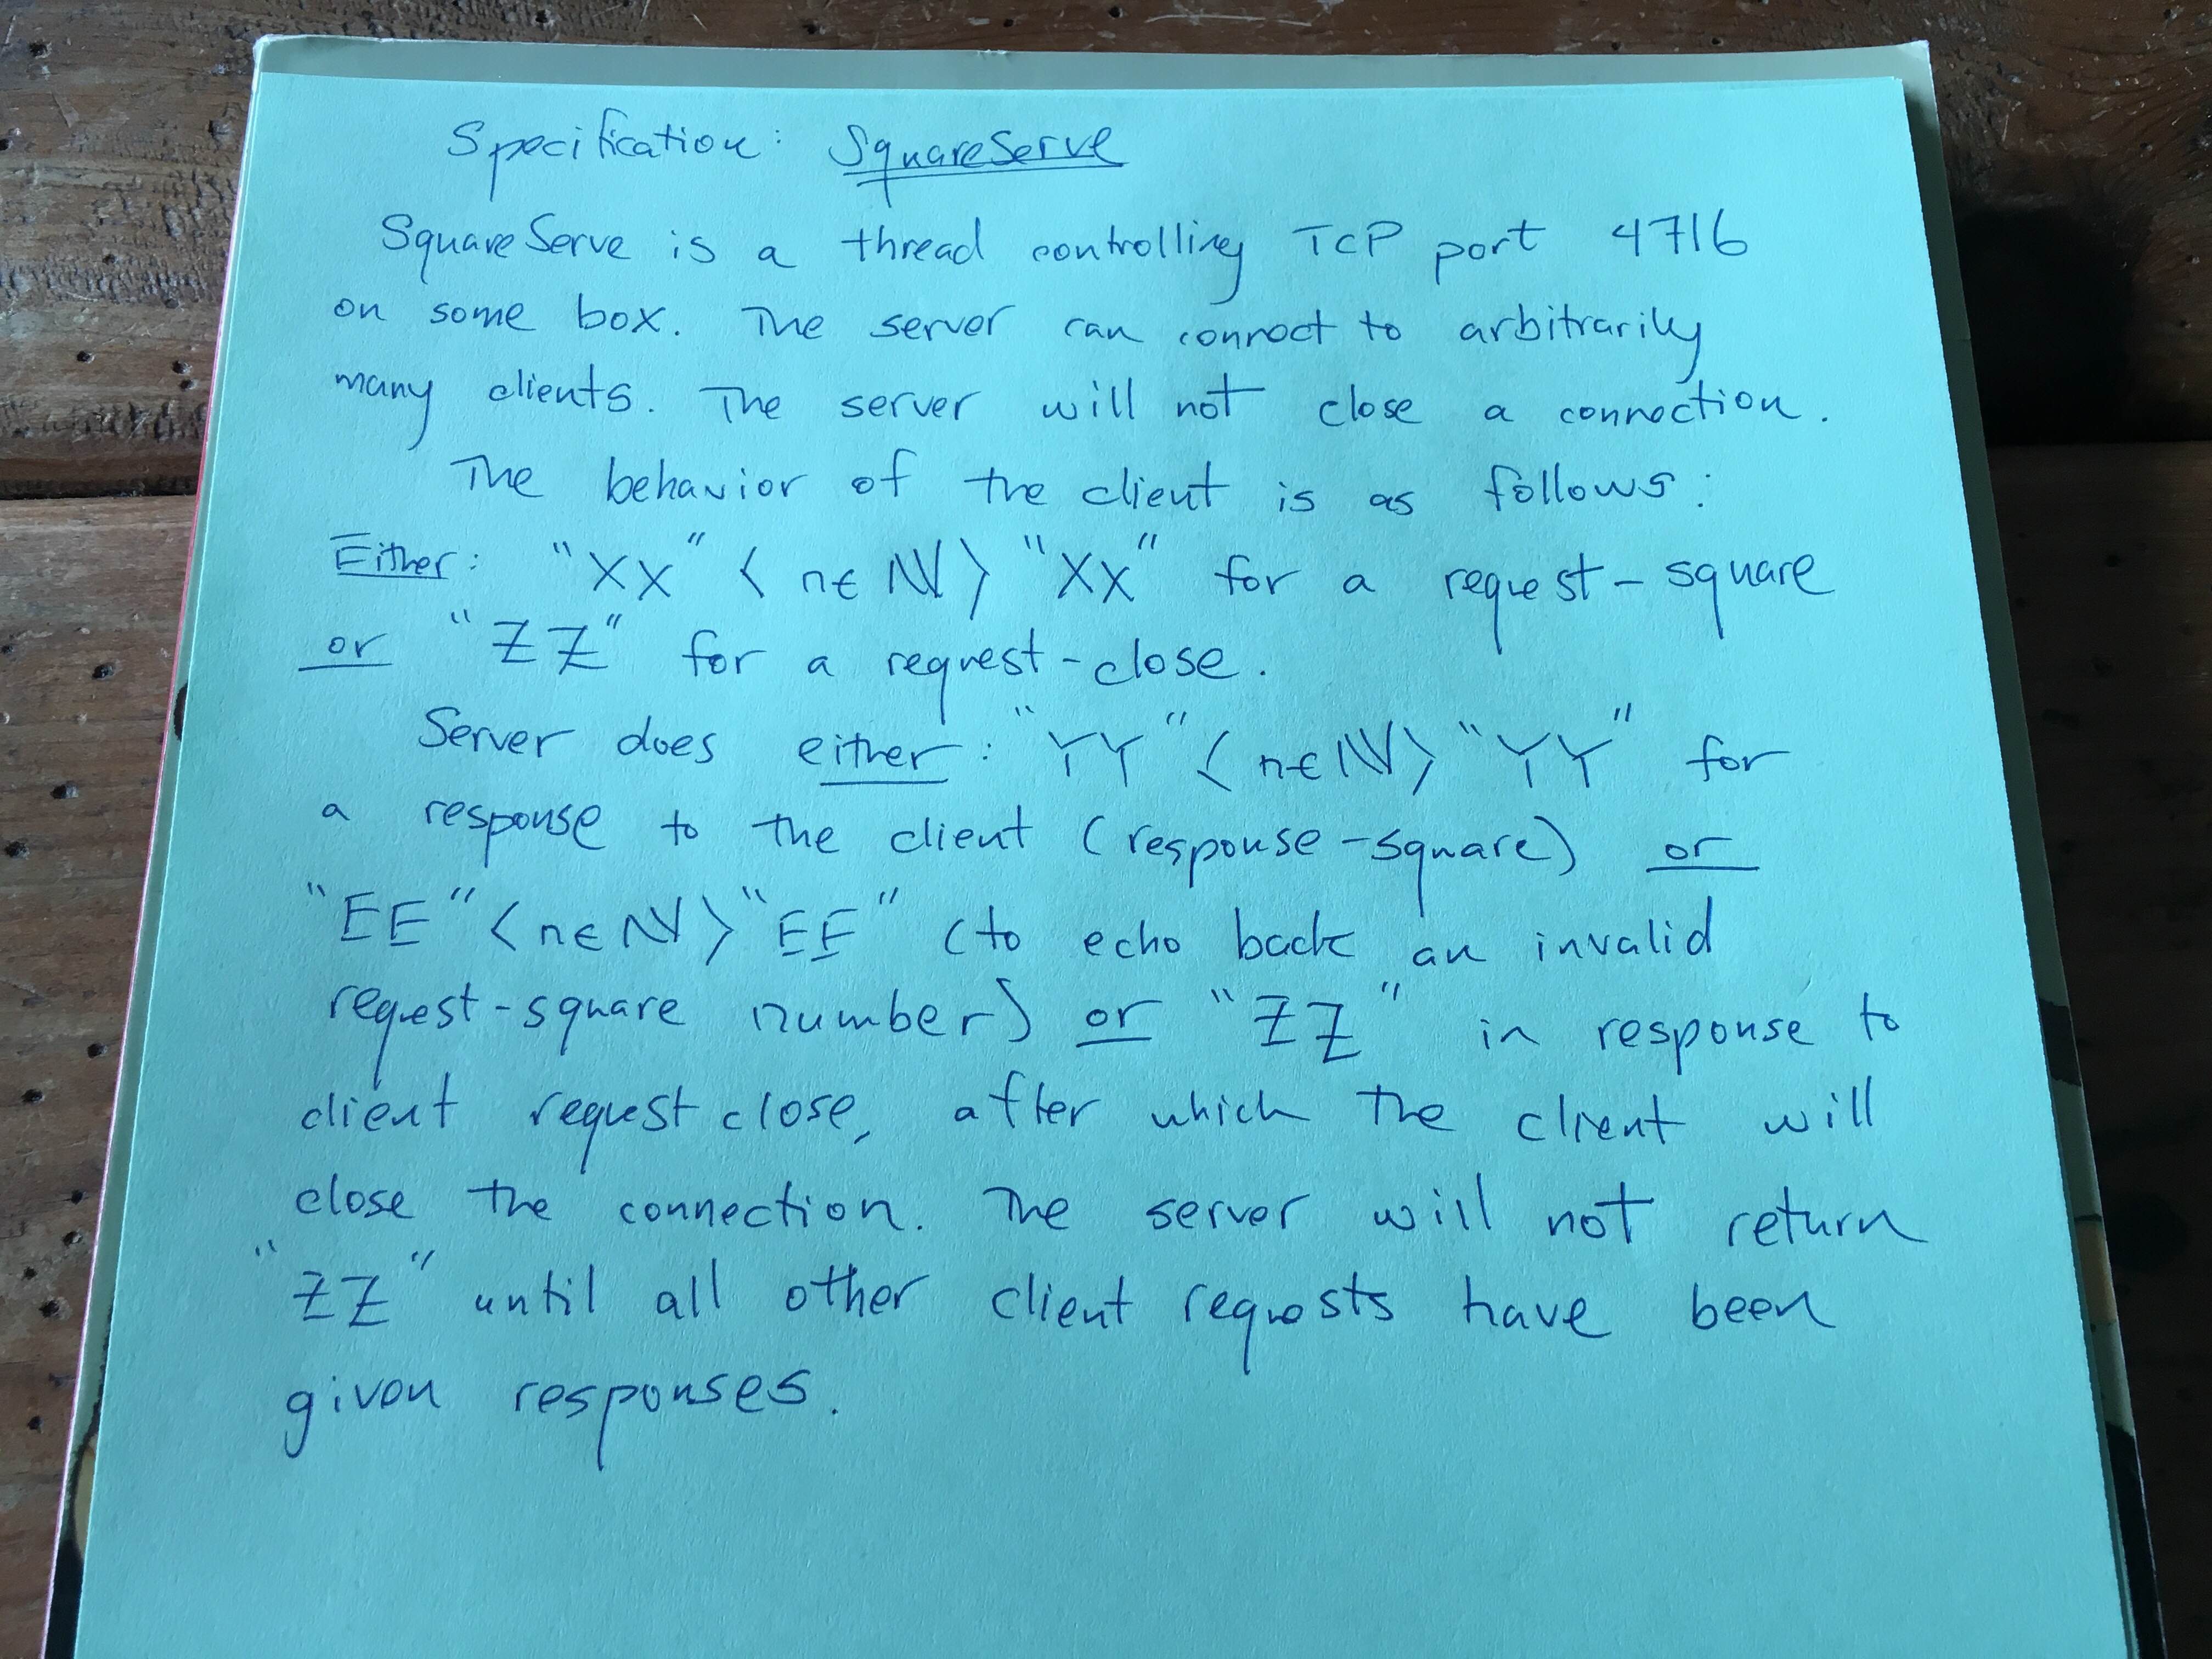 Specification: SquareServe
SquareServe is a thread controlling TCP port 4716
on some box. The server can connect to arbitrarily
many clients. The server will not close a connection.
The behavior of the client is as follows:
Either: "XX" ⟨n∈ℕ⟩ "XX" for a request-square
or "ZZ" for a request-close.
Server does either: "YY" ⟨n∈ℕ⟩ "YY" for
a response to the client (response-square) or
"EE" ⟨n∈ℕ⟩ "EE" (to echo back an invalid
request-square number) or "ZZ" in response to
client request close, after which the client will
close the connection. The server will not return
"ZZ" until all other client requests have been
given responses.